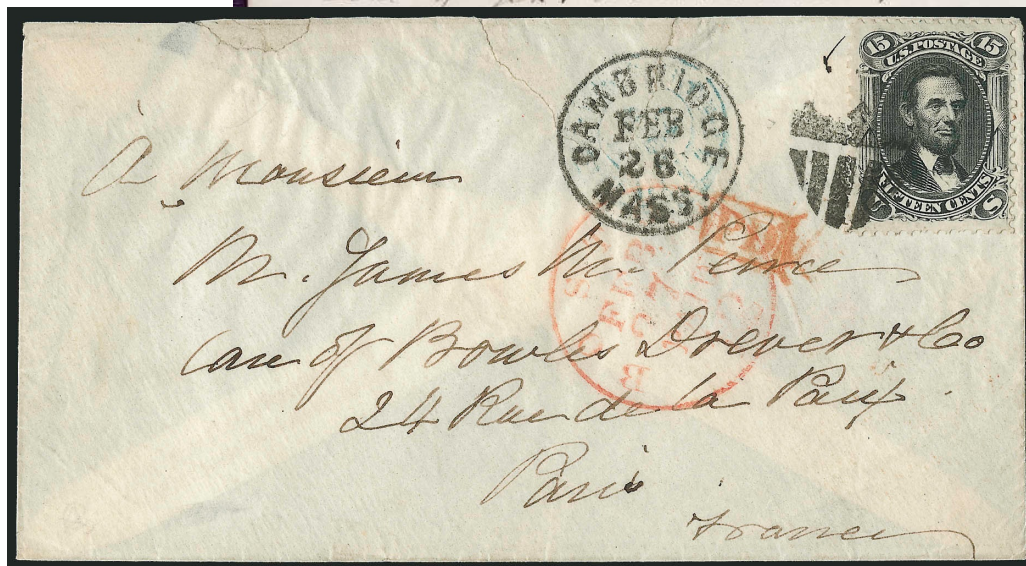 15 U.S. POSTAGE 15
FIFTEEN CENTS
CAMBRIDGE
FEB
26
MASS.
PD
À Monsieur
M. James M. Peirce
Care of Bowles Drever & Co
24 Rue de la Paix
Paris
France